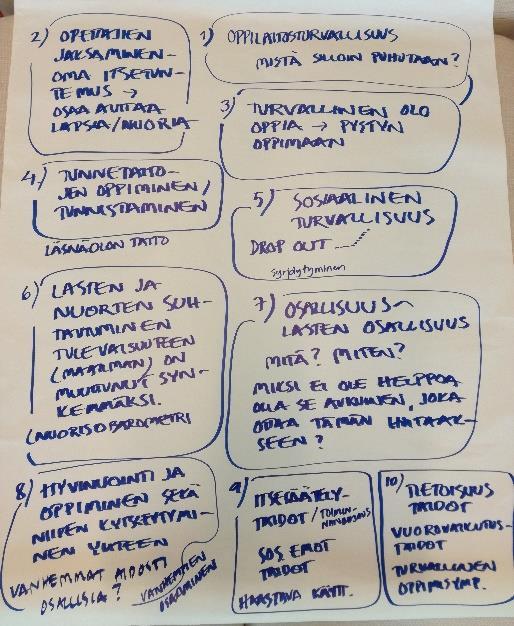 1) OPPILAITOSTURVALLISUUS
MISTÄ SILLOIN PUHUTAAN?
2) OPETTAJIEN
JAKSAMINEN -
OMA ITSETUN-
TEMUS →
OSAA AUTTAA
LAPSIA/NUORIA
3) TURVALLINEN OLO
OPPIA → PYSTYN
OPPIMAAN
4) TUNNETAITO-
JEN OPPIMINEN/
TUNNISTAMINEN
LÄSNÄOLON TAITO
5) SOSIAALINEN
TURVALLISUUS
DROP OUT
syrjäytyminen
6) LASTEN JA
NUORTEN SUH-
TAUTUMINEN
TULEVAISUUTEEN
(MAAILMAN) ON
MUUTTUNUT SYN-
KEMMÄKSI.
(NUORISOBAROMETRI
7) OSALLISUUS
LASTEN OSALLISUUS
MITÄ? MITEN?
MIKSI EI OLE HELPPOA
OLLA SE AIKUINEN, JOKA
OTTAA TÄMÄN HATAAK-
SEEN?
8) HYVINVOINTI JA
OPPIMINEN SEKÄ
NIIDEN KYTKEYTYMI-
NEN YHTEEN
VANHEMMAT AIDOSTI
OSALLISIA?
VANHEMPIEN
OSAAMINEN
9) ITSESÄÄTELY-
TAIDOT / TOIMIN-
NANOHJAUS
SOS. EMOT
TAIDOT
HAASTAVA KÄYTT.
10) TIETOISUUS
TAIDOT
VUOROVAIKUTUS-
TAIDOT
TURVALLINEN
OPPIMISYMP.